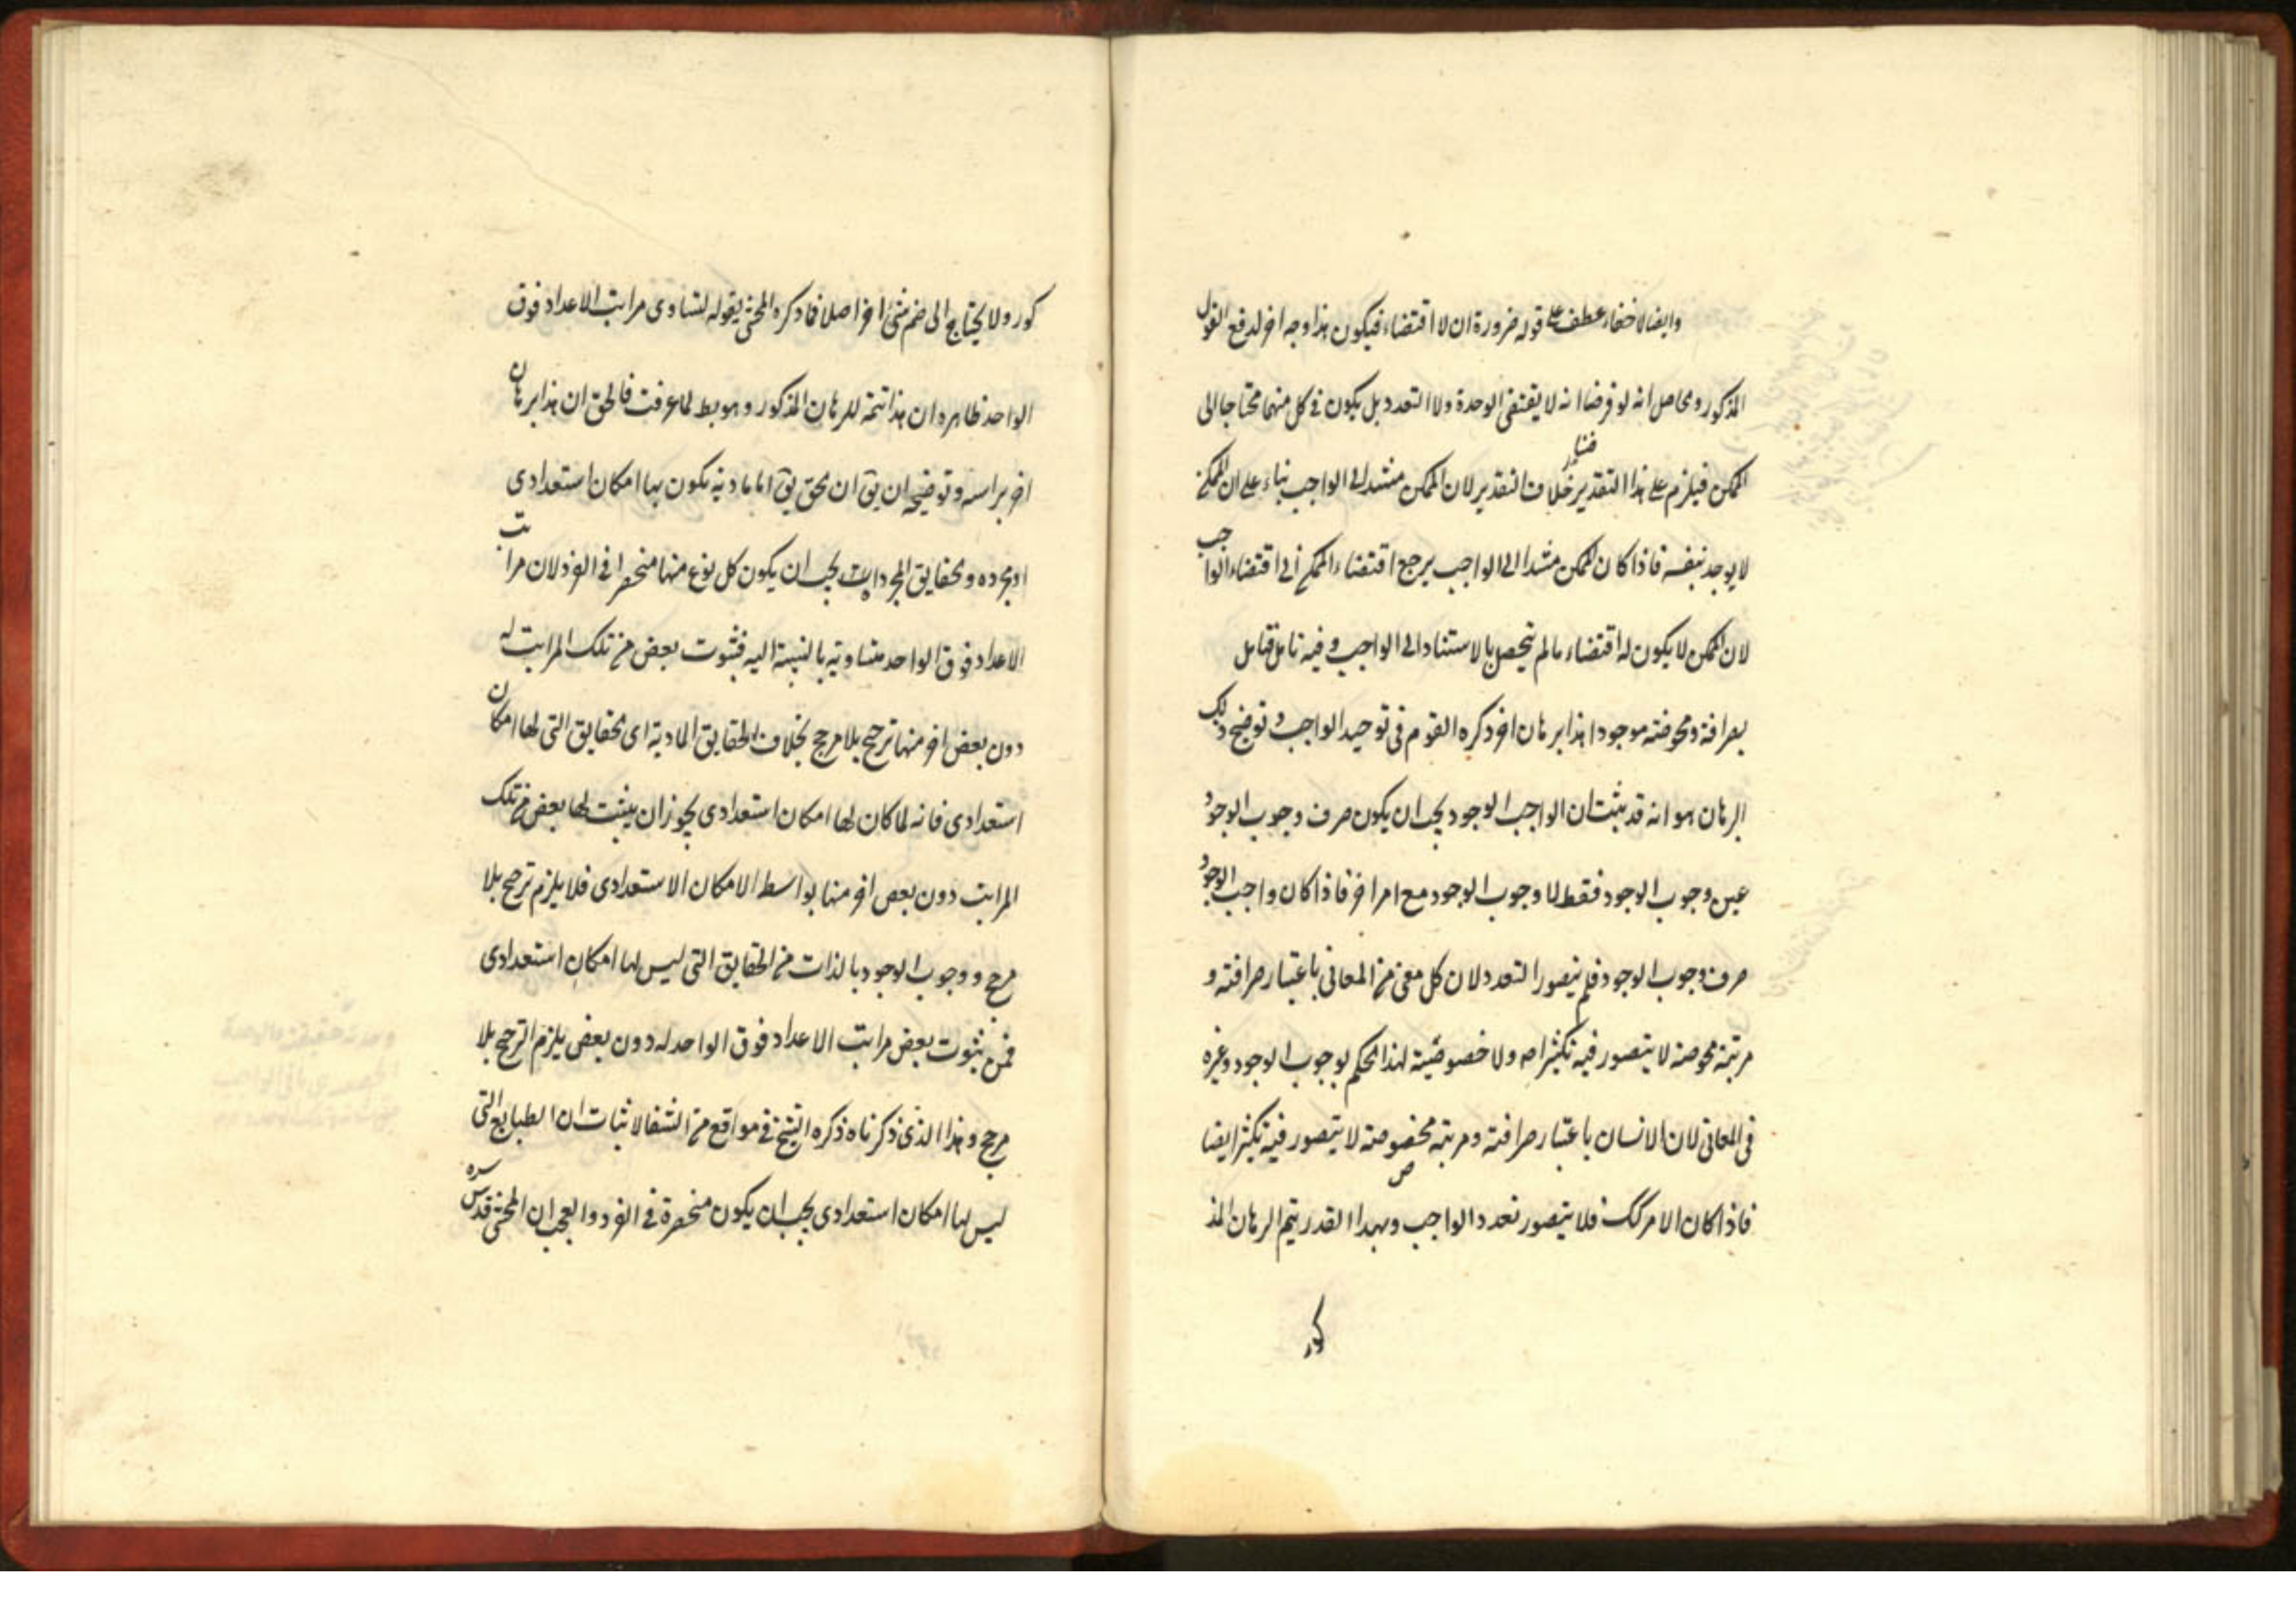 وايضا لا خفاء عطف على قوله ضرورة ان لا اقتضاء فيكون هذا وجه اخر لدفع القول
المذكور ومحاصل انه لو فرضنا انه لا يقتضى الوحدة ولا التعدد بل يكون فى كل منهما محتاجا الى
الممكن فيلزم على هذا التقدير خلاف التقدير لان الممكن مستند الى الواجب بناء على ان الممكن
لا يوجد بنفسه فاذا كان الممكن مستندا الى الواجب يرجع اقتضاء الممكن الى اقتضاء الواجب
لان الممكن لا يكون له اقتضاء ما لم يتحصل بالاستناد الى الواجب وفيه تامل فتامل
بصرافته ومحوضته موجودا هذا برهان اخر ذكره القوم فى توحيد الواجب وتوضيح ذلك
البرهان هو انه قد يثبت ان الواجب الوجود يجب ان يكون صرف وجوب الوجود
عين وجوب الوجود فقط لا وجوب الوجود مع امر اخر فاذا كان واجب الوجود
صرف وجوب الوجود فلم يتصور التعدد لان كل معنى من المعانى باعتبار صرافته و
مرتبة محوضته لا يتصور فيه تكثر اصلا ولا خصوصية لهذا الحكم لوجوب الوجود وغيره
فى المعانى لان الانسان باعتبار صرافته ومرتبة محضوصته لا يتصور فيه تكثر ايضا
فاذا كان الامر كك فلا يتصور تعدد الواجب وبهذا القدر يتم البرهان المذ
كور
كور ولا يحتاج الى ضم شئ اخر اصلا فما ذكره المحشى بقوله لتساوى مراتب الاعداد فوق
الواحد ظاهره ان هذا تتمة للبرهان المذكور وهو بط لما عرفت فالحق ان هذا برهان
اخر براسه وتوضيحه ان يق ان محق يق اما مادية يكون بها امكان استعدادى
او مجرده ومحقايق المجردات يجب ان يكون كل نوع منها منحصرا فى الفرد لان مراتب
الاعداد فوق الواحد متساوية بالنسبة اليه فثبوت بعض من تلك المراتب له
دون بعض اخر منها ترجيح بلا مرجح بخلاف الحقايق المادية اى محقايق التى لها امكان
استعدادى فانه لما كان لها امكان استعدادى يجوز ان يثبت لها بعض من تلك
المراتب دون بعض اخر منها بواسط الامكان الاستعدادى فلا يلزم ترجيح بلا
مرجح ووجوب الوجود بالذات من الحقايق التى ليس لها امكان استعدادى
فمن ثبوت بعض مراتب الاعداد فوق الواحد له دون بعض يلزم الترجيح بلا
مرجح وهذا الذى ذكرناه ذكره الشيخ فى مواقع من الشفا لاثبات ان الطبايع التى
ليس لها امكان استعدادى يجب ان يكون منحصرة فى الفرد والعجب ان المحشى قدس سره